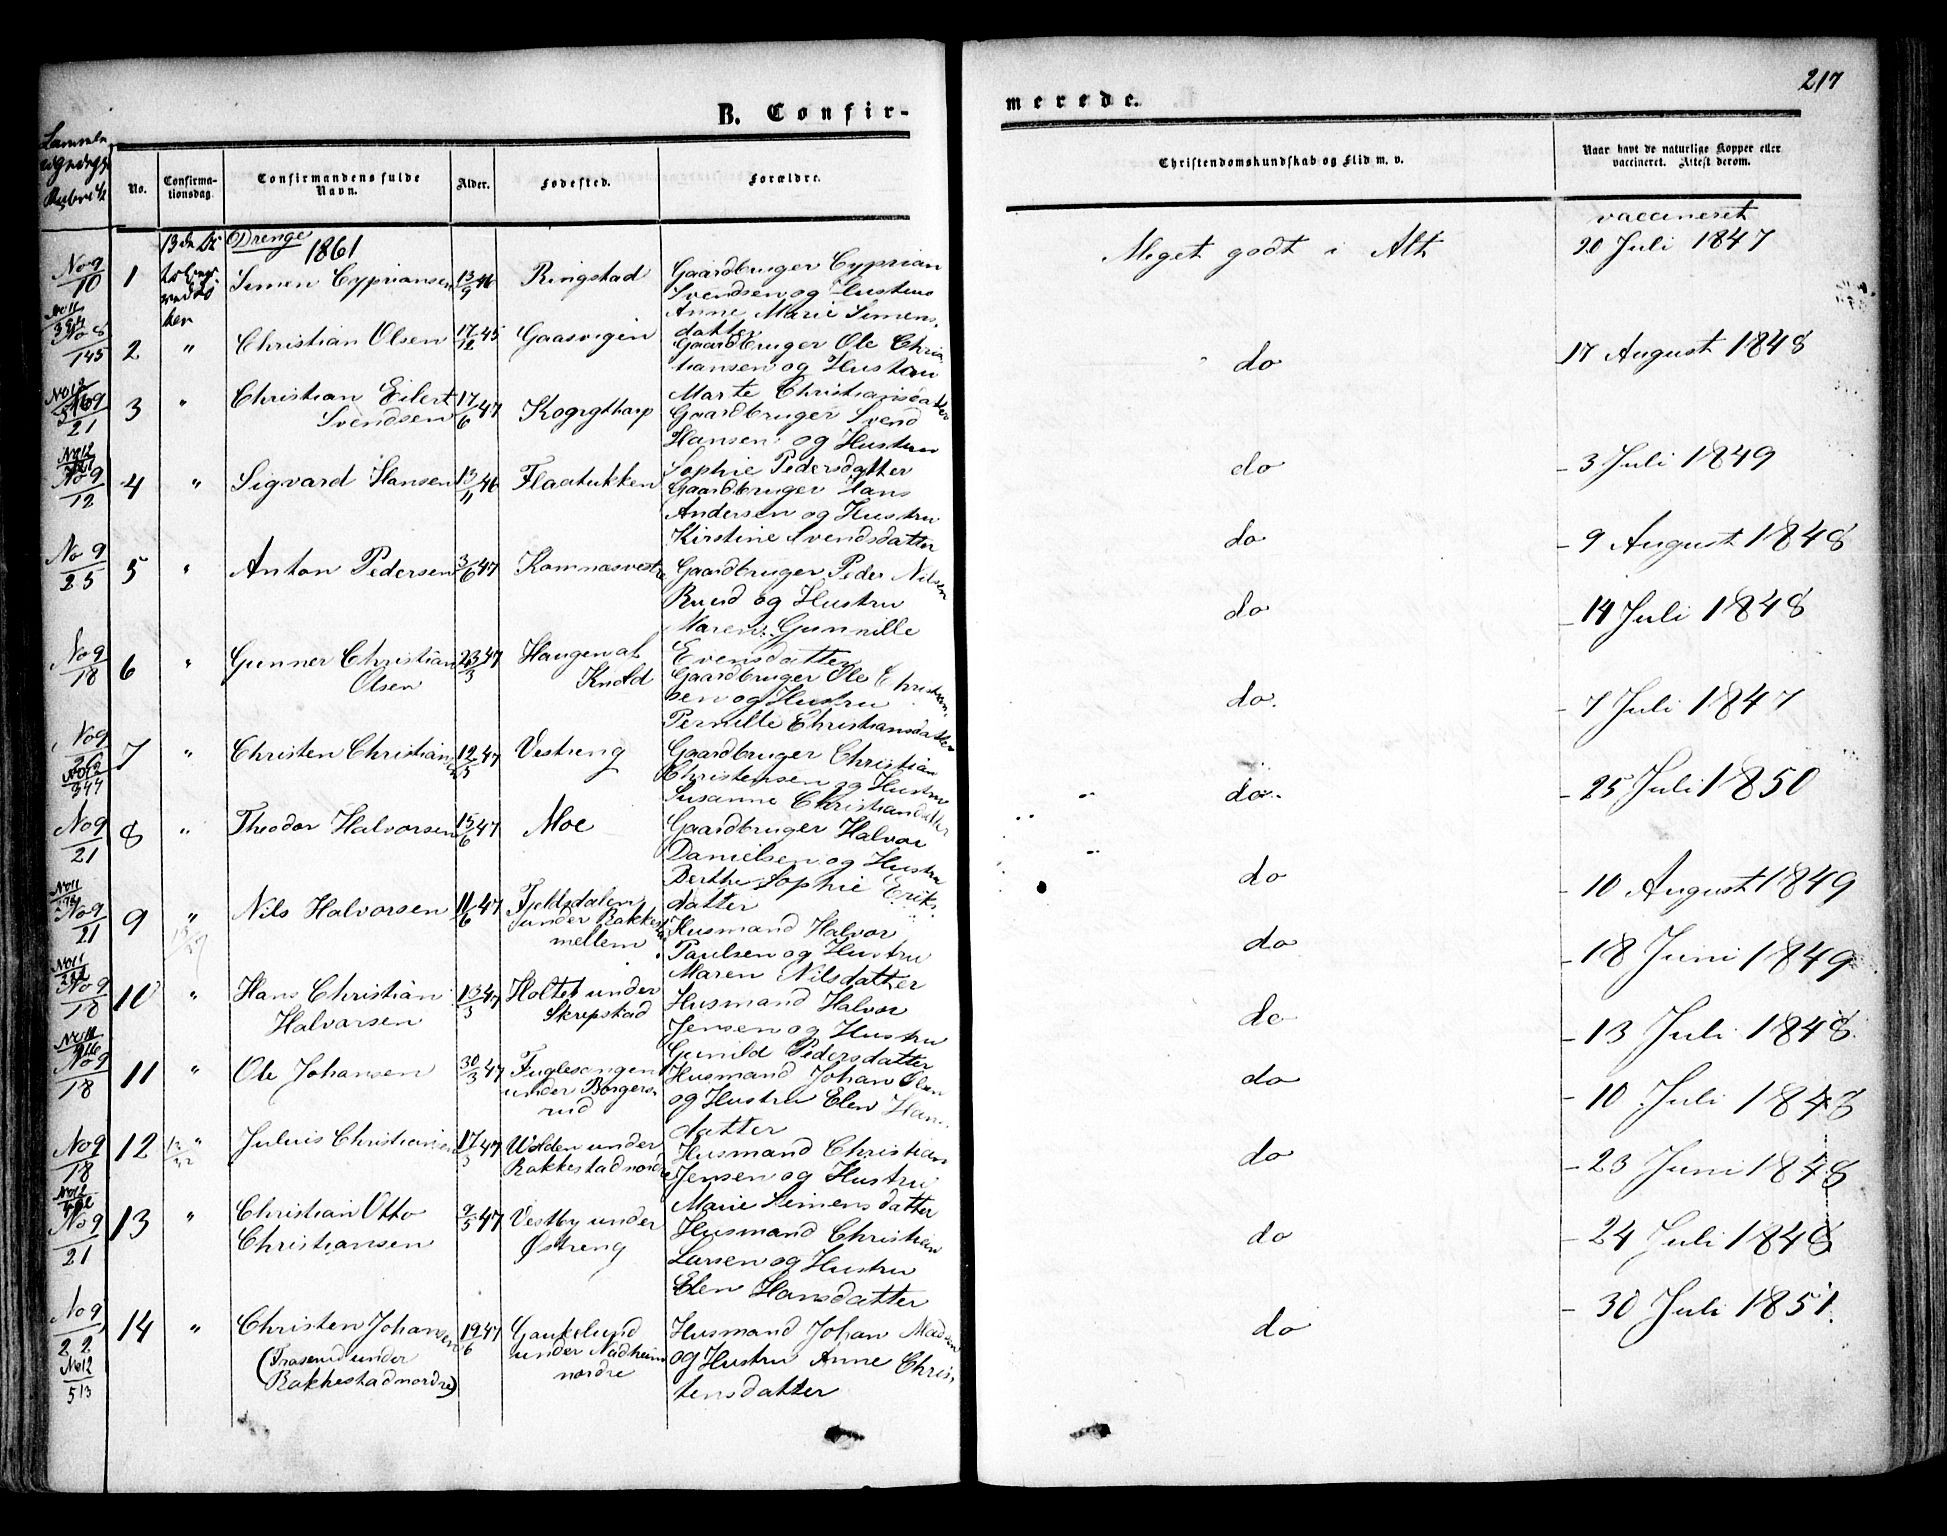 217
B. Confir-
merede.
No.
Confirma-
tionsdag.
Confirmandens fulde
Navn.
Alder.
Fødested.
Forældre.
Christendomskundskab og Flid m. v.
Naar havt de naturlige Kopper eller
vaccineret. Attest derom.
Drenge
1861
No 9
10
1
Simen Cypriansen
13/9 46
Ringstad
Gaardbruger Cyprian
Svendsen og Hustru
Anne Marie Simens-
datter
Meget godt i Alt
vaccineret
20 Juli 1847
No 8
145
2
"
Christian Olsen
17/12 45
Gaasvigen
Gaardbruger Ole Chris
tiansen og Hustru
Marte Christiansdatter
do
- 17 August 1848
No 9
21
3
"
Christian Eilert
Svendsen
17/6 47
Gaardbruger Svend
Hansen og Hustru
Sophie Pedersdatter
do
- 3 Juli 1849
No 9
12
4
"
Sigvard Hansen
13/11 46
Flaatukken
Gaardbruger Hans
Andersen og Hustru
Kirstine Svendsdatter
do
- 9 August 1848
No 9
25
5
"
Anton Pedersen
3/6 47
Kamnæsvestre
Gaardbruger Peder Nilsen
Ruud og Hustru
Maren Gunnille
Evensdatter
do
- 14 Juli 1848
No 9
18
6
"
Gunner Christian
Olsen
23/3 47
Haugen af
Knold
Gaardbruger Ole Christian
sen og Hustru
Pernille Christiansdatter
do.
- 7 Juli 1847
No 9
No 12
347
7
"
Christen Christiansen
12/5 47
Vestreng
Gaardbruger Christian
Christensen og Hustru
Susanne Christiansdatter
do
- 25 Juli 1850
No 9
21
8
"
Theodor Halvorsen
15/6 47
Moe
Gaardbruger Halvor
Danielsen og Hustru
Berthe Sophie Eriks-
datter
do
- 10 August 1849
No 11
No 9
21
9
"
Nils Halvorsen
11/6 47
Fjeldsdalen
under Rakkestad
mellem
Husmand Halvor
Paulsen og Hustru
Maren Nilsdatter
do
- 18 Juni 1849
No 11
222
No 9
18
10
"
Hans Christian
Halvorsen
13/3 47
Holtet under
Skrepstad
Husmand Halvor
Jensen og Hustru
Gunild Pedersdatter
do
- 13 Juli 1848
No 9
18
11
"
Ole Johansen
30/3 47
Fuglesangen
under Borgers-
rud
Husmand Johan Olsen
og Hustru Elen Hans
datter
do
- 10 Juli 1848
No 9
18
12
"
Julius Christiansen
17/3 47
Volden under
Rakkestad nordre
Husmand Christian
Jensen og Hustru
Marie Simensdatter
do
- 23 Juni 1848
No 12
No 9
21
13
"
Christian Otto
Christiansen
9/5 47
Vestby under
Østreng
Husmand Christian
Larsen og Hustru
Elen Hansdatter
do
- 24 Juli 1848
No 9
22
No 12
513
14
"
Christen Johansen
(Fraserud under
Rakkestad nordre)
19/6 47
Gaukelund
under Nadheim
nordre
Husmand Johan Madsen
og Hustru Anne Chris
tensdatter
do
- 30 Juli 1851.